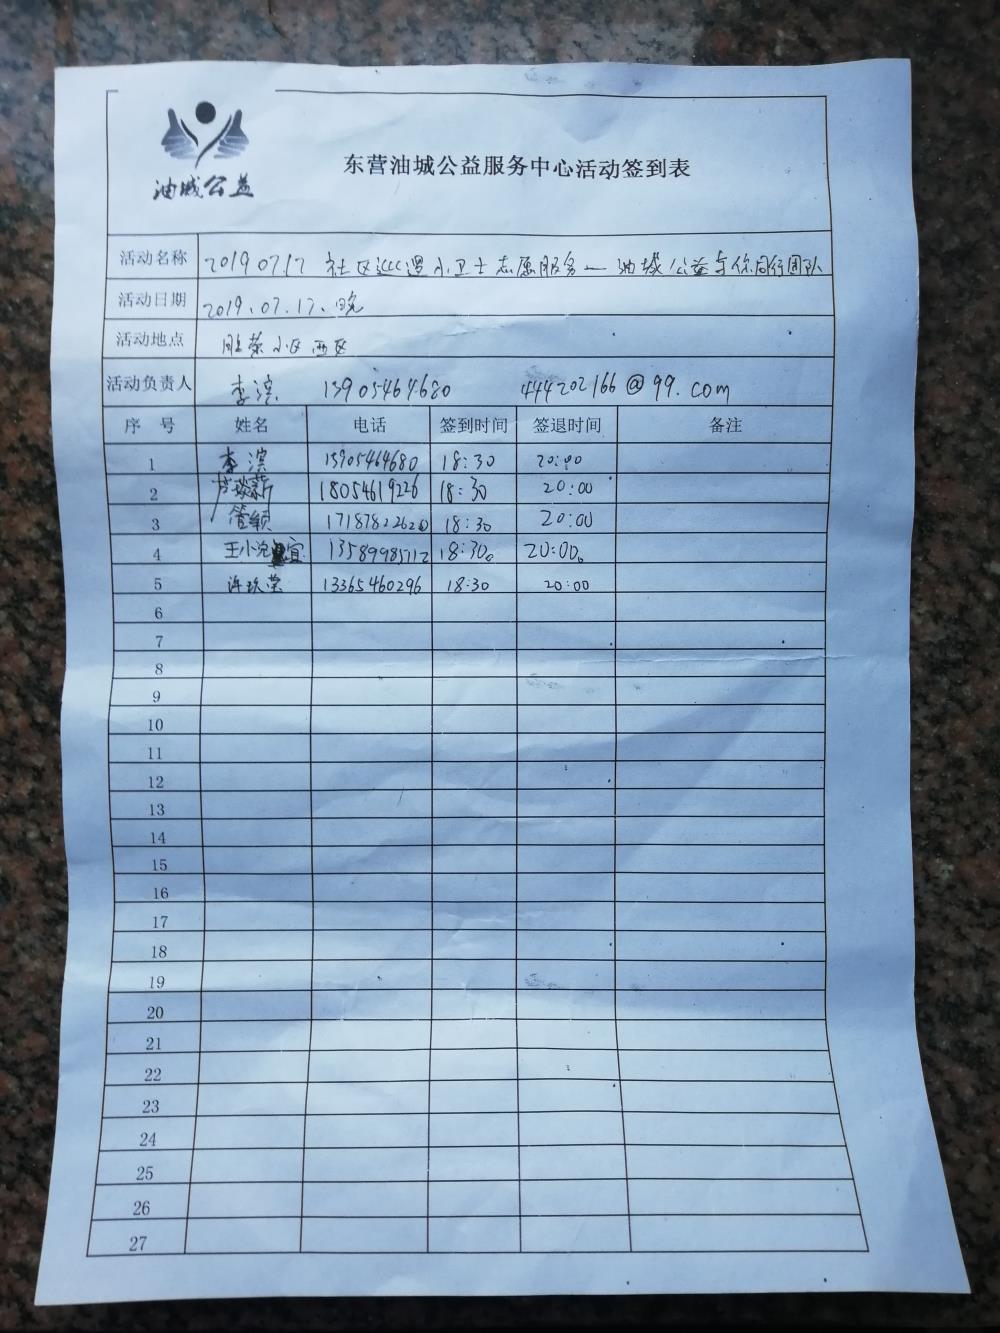 油城公益
东营油城公益服务中心活动签到表
活动名称 20190717 社区 小卫士志愿服务—油城公益与你同行团队
活动日期 2019.07.17.晚
活动地点 胜荣小区西区
活动负责人 李滨 13905464680 444202166@99.com
序 号 姓名 电话 签到时间 签退时间 备注
1 李滨 13905464680 18:30 20:00
2 18054619226 18:30 20:00
3 管颖 18:30 20:00
4 王小 宜 18:30。 20:00。
5 许玖荣 13365460296 18:30 20:00
6
7
8
9
10
11
12
13
14
15
16
17
18
19
20
21
22
23
24
25
26
27